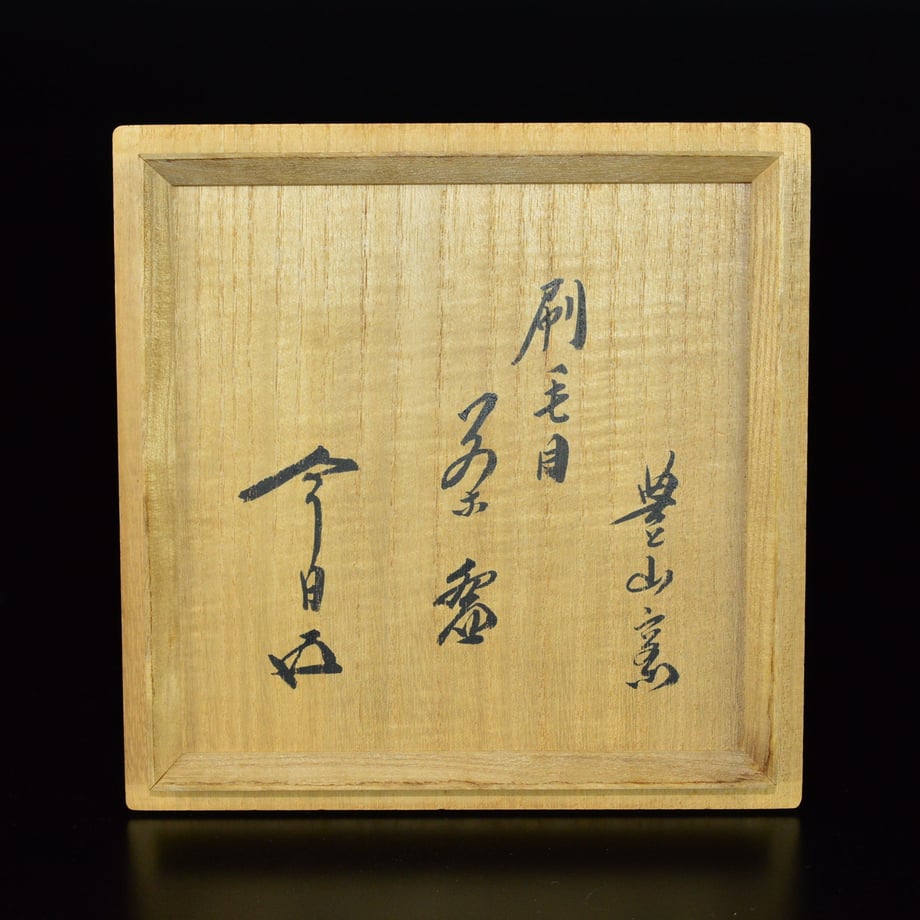 豊山窯
刷毛目
茶盌
今日